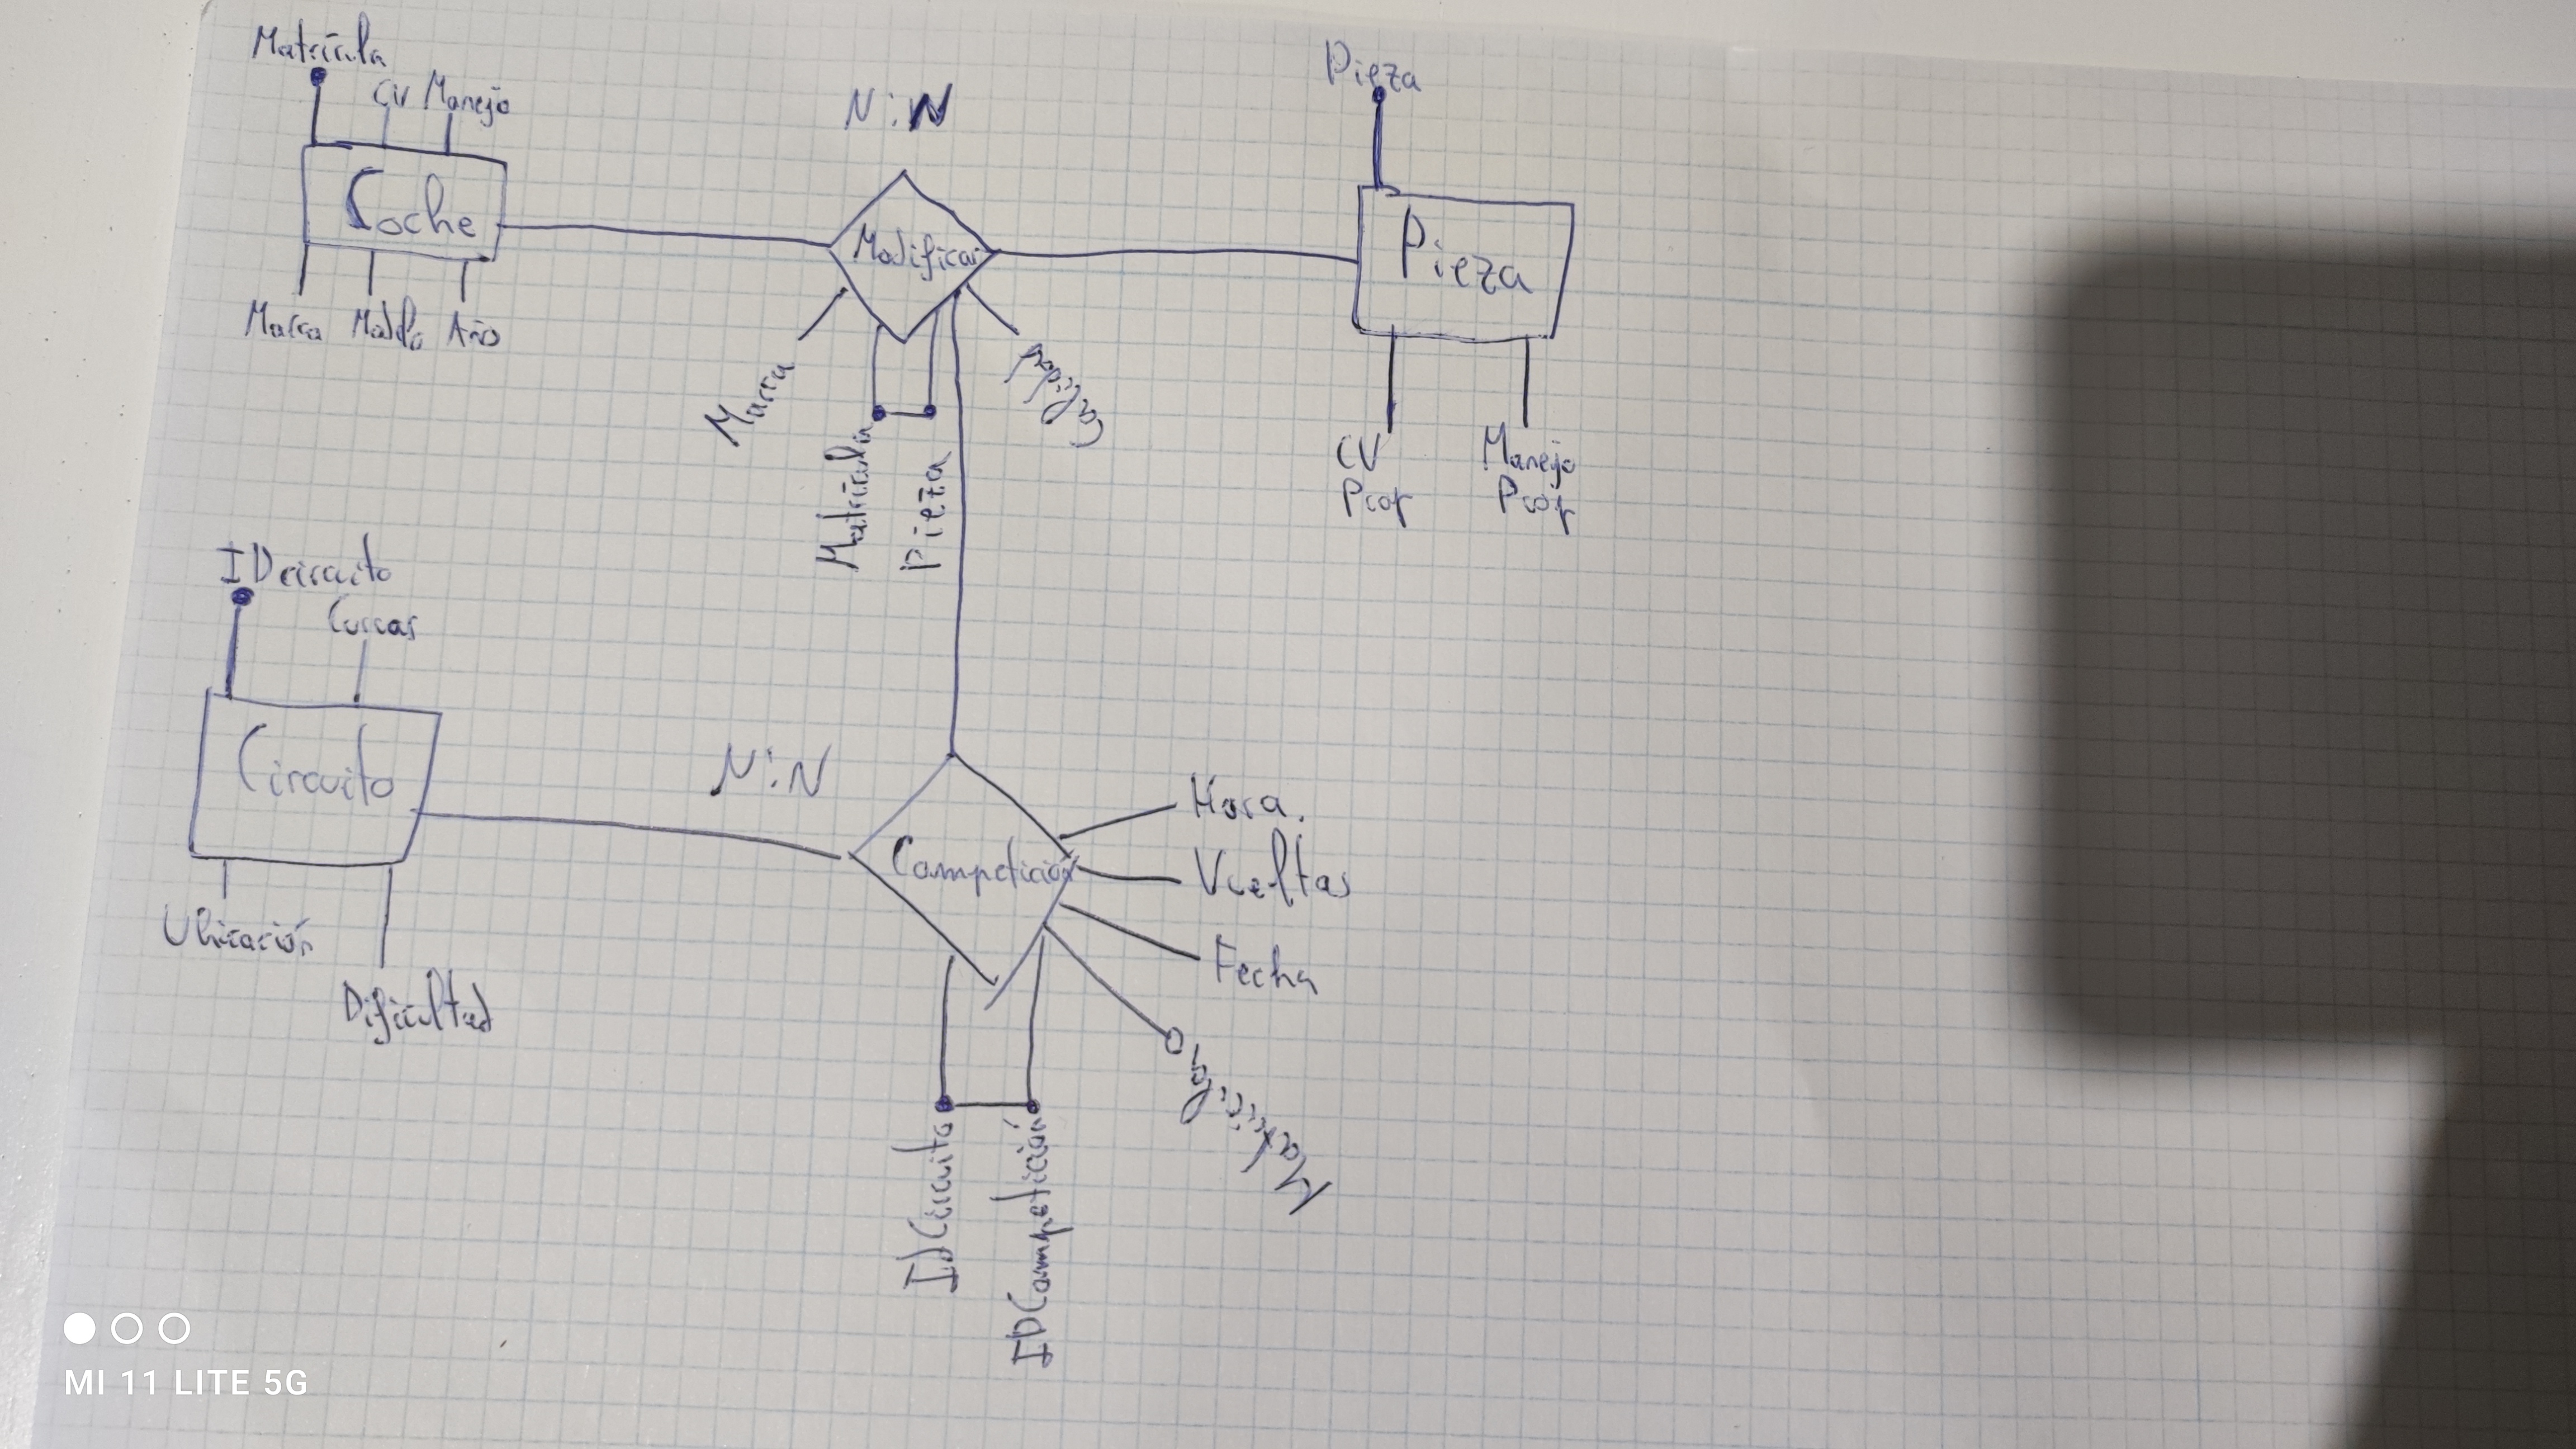 Matrícula
CV Manejo
Coche
Marca Modelo Año
N:N
Modificar
Marca
Matrícula
Pieza
Calidad
Pieza
Pieza
CV
Prop
Manejo
Prop
IDcircuito
Curvas
Circuito
Ubicación
Dificultad
N:N
Competición
Hora.
Vueltas
Fecha
IDCircuito
IDCompetición
MI 11 LITE 5G